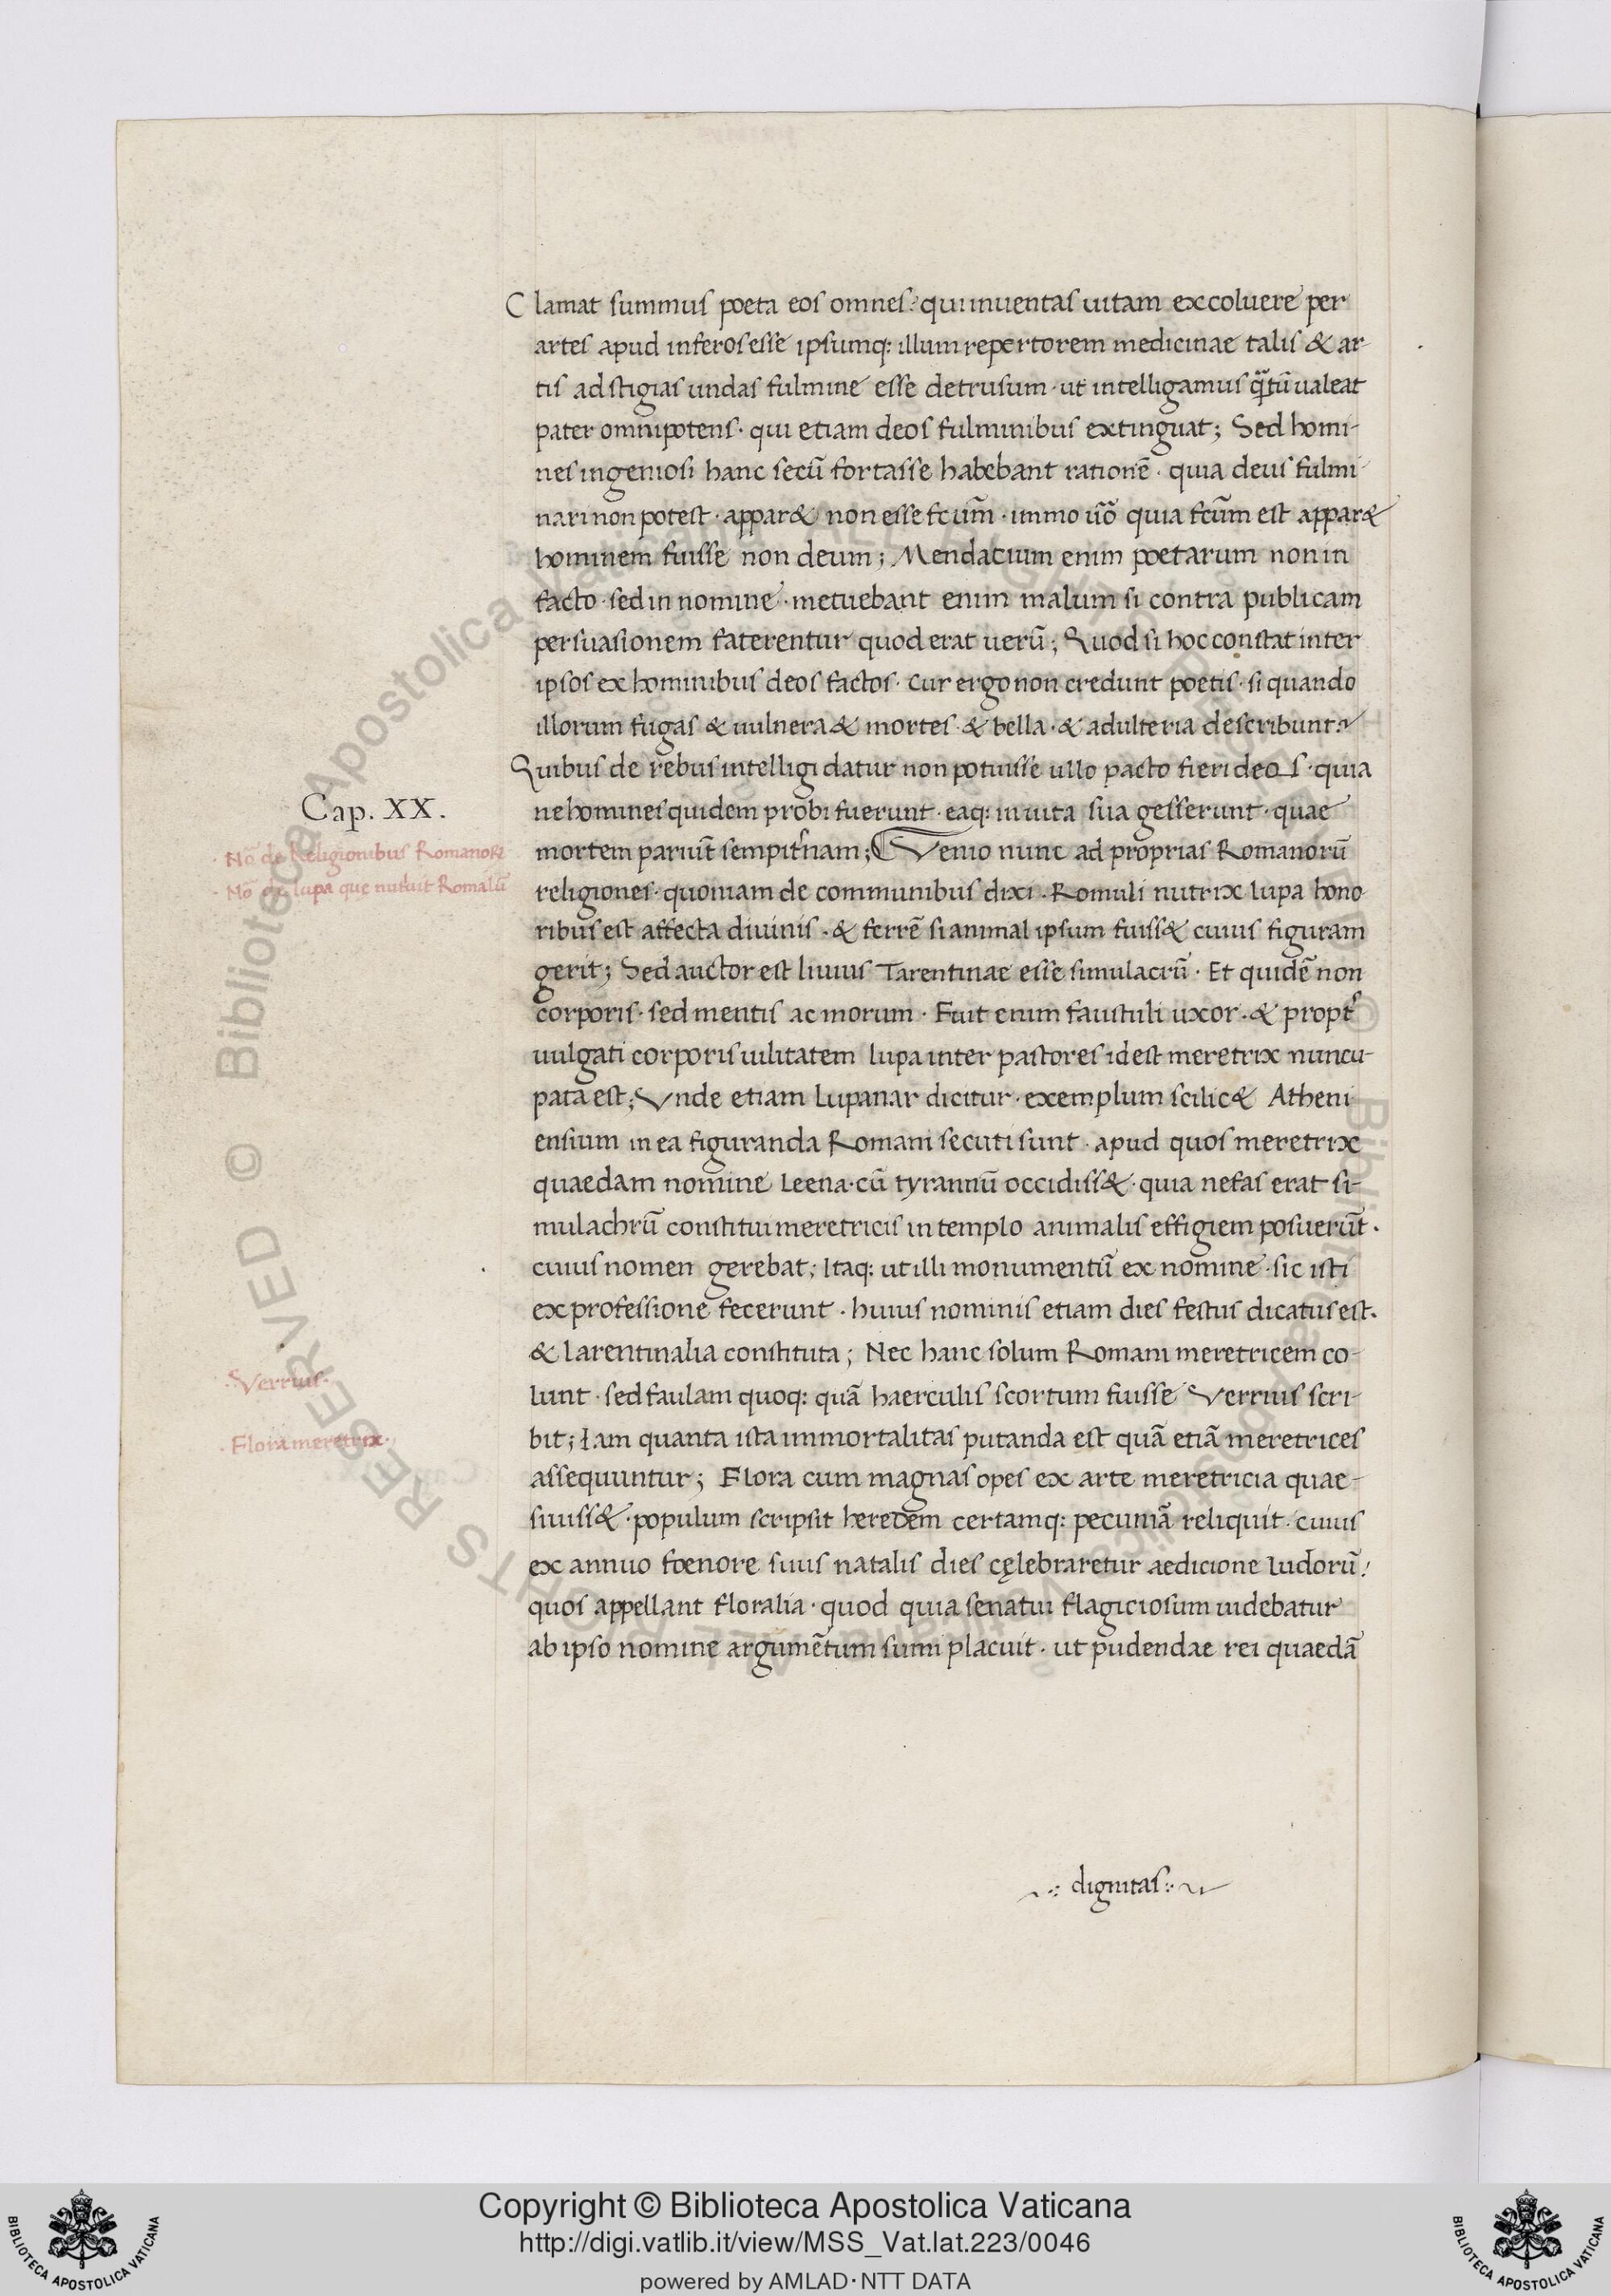 Clamat summus poeta eos omnes: qui inuentas uitam excoluere per
artes apud inferos esse ipsumq: illum repertorem medicinae talis & ar-
tis ad stigias undas fulmine esse detrusum · ut intelligamus q̃tũ ualeat
pater omnipotens · qui etiam deos fulminibus extinguat; Sed homi-
nes ingeniosi hanc secũ fortasse habebant rationẽ · quia deus fulmi
nari non potest · appar& non esse fcũm · immo uõ quia fcũm est appar&
hominem fuisse non deum; Mendacium enim poetarum non in
facto · sed in nomine · metuebant enim malum si contra publicam
persuasionem faterentur quod erat uerũ; Quod si hoc constat inter
ipsos ex hominibus deos factos · cur ergo non credunt poetis · si quando
illorum fugas & uulnera & mortes · & bella · & adulteria describunt?
Quibus de rebus intelligi datur non potuisse ullo pacto fieri deos · quia
Cap. XX.
ne homines quidem probi fuerunt · eaq: in uita sua gesserunt · quae
· Nõ de Religionibus Romanoꝝ
mortem pariũt sempit̃nam; Venio nunc ad proprias Romanorũ
· Nõ de lupa quę nutriuit Romulũ
religiones · quoniam de communibus dixi · Romuli nutrix lupa hono
ribus est affecta diuinis · & ferrẽ si animal ipsum fuiss& cuius figuram
gerit; Sed auctor est liuius Tarentinae esse simulacrũ · Et quidẽ non
corporis · sed mentis ac morum · Fuit enim faustuli uxor · & propt̃
uulgati corporis uilitatem lupa inter pastores id est meretrix nuncu-
pata est; Vnde etiam Lupanar dicitur · exemplum scilic& Atheni
ensium in ea figuranda Romani secuti sunt · apud quos meretrix
quaedam nomine Leena · cũ tyrannũ occidiss& · quia nefas erat si-
mulachrũ constitui meretricis in templo animalis effigiem posuerũt ·
cuius nomen gerebat; Itaq: ut illi monumentũ ex nomine · sic isti
ex professione fecerunt · huius nominis etiam dies festus dicatus est ·
& larentinalia constituta; Nec hanc solum Romani meretricem co-
· Verrius ·
lunt · sed faulam quoq: quã haerculis scortum fuisse Verrius scri-
· Flora meretrix ·
bit; Iam quanta ista immortalitas putanda est quã etiã meretrices
assequuntur; Flora cum magnas opes ex arte meretricia quae-
siuiss& · populum scripsit heredem certamq: pecuniã reliquit · cuius
ex annuo foenore suus natalis dies cęlebraretur aedicione ludorũ:
quos appellant floralia · quod quia senatui flagiciosum uidebatur
ab ipso nomine argumẽtum sumi placuit · ut pudendae rei quaedã
dignitas
© Biblioteca Apostolica Vaticana ALL RIGHTS RESERVED
Copyright © Biblioteca Apostolica Vaticana
http://digi.vatlib.it/view/MSS_Vat.lat.223/0046
powered by AMLAD·NTT DATA
BIBLIOTECA APOSTOLICA VATICANA
BIBLIOTECA APOSTOLICA VATICANA